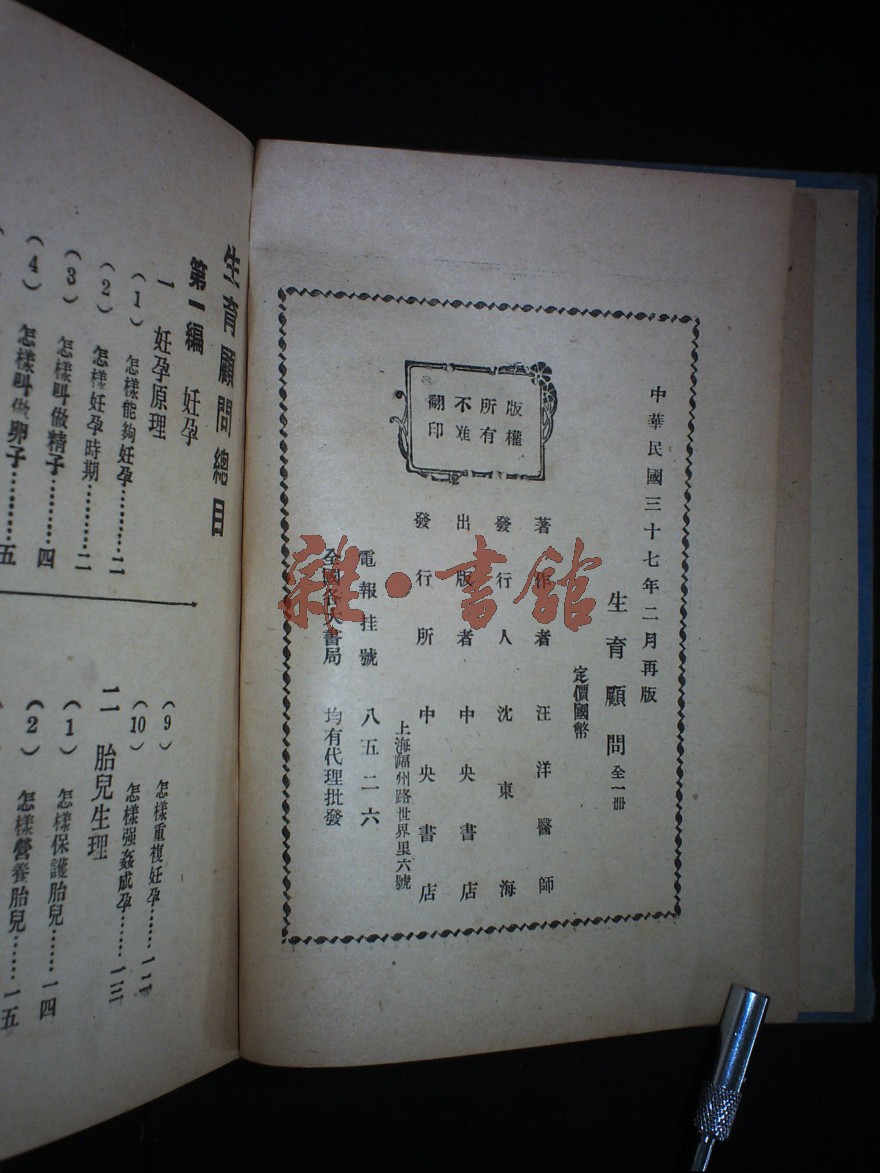 中華民國三十七年二月再版
生育顧問 全一冊
定價國幣
著作者 汪洋醫師
發行人 沈東海
出版者 中央書店
發行所 中央書店
上海福州路世界里六號
電報挂號 八五二六
全國各大書局 均有代理批發
版權
所有
不准
翻印
雜·書館
生育顧問總目
第一編 妊孕
一 妊孕原理
(1) 怎樣能夠妊孕………二
(2) 怎樣妊孕時期………二
(3) 怎樣叫做精子………四
(4) 怎樣叫做卵子………五
(9) 怎樣重複妊孕……一二
(10) 怎樣强姦成孕……一三
二 胎兒生理
(1) 怎樣保護胎兒……一四
(2) 怎樣營養胎兒……一五